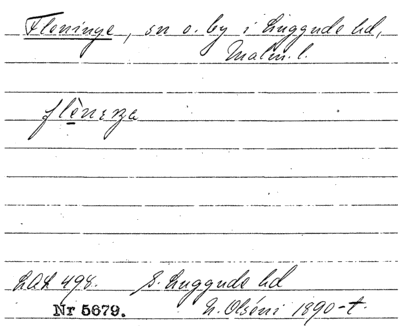 Fleninge, sn o. by i Luggude hd,
Malm. l.
flènınga
LAL 498. S. Luggude hd
Nr 5679. N. Olséni 1890-t.